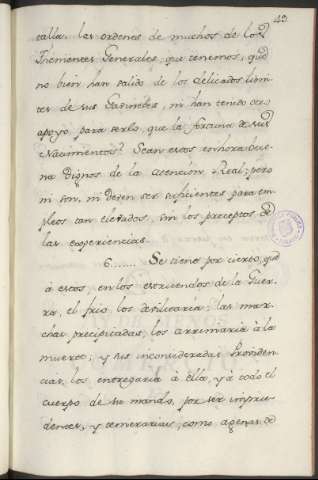 49.
talla, las ordenes de muchos de los
Thenientes Generales, que tenemos, que
no bien han salido de los delicados limi-
tes de sus Gavinetes, ni han tenido otro
apoyo para serlo, que la fortuna de sus
Nacimientos? Sean estos enhorabue-
na dignos de la atencion Real; pero
ni son, ni deven ser suficientes para em-
pleos tan elevados, sin los preceptos de
las experiencias.
6...... Se tiene por cierto, que
à estos, en los estruendos de la Guer-
ra, el frio los devilitaria; las mar-
chas precipitadas, los arrimaria à la
muerte; y sus inconsideradas Providen-
cias, los entregaria à ella, yà todo el
cuerpo de su mando, por ser impru-
dentes, y temerarias, como agenas de